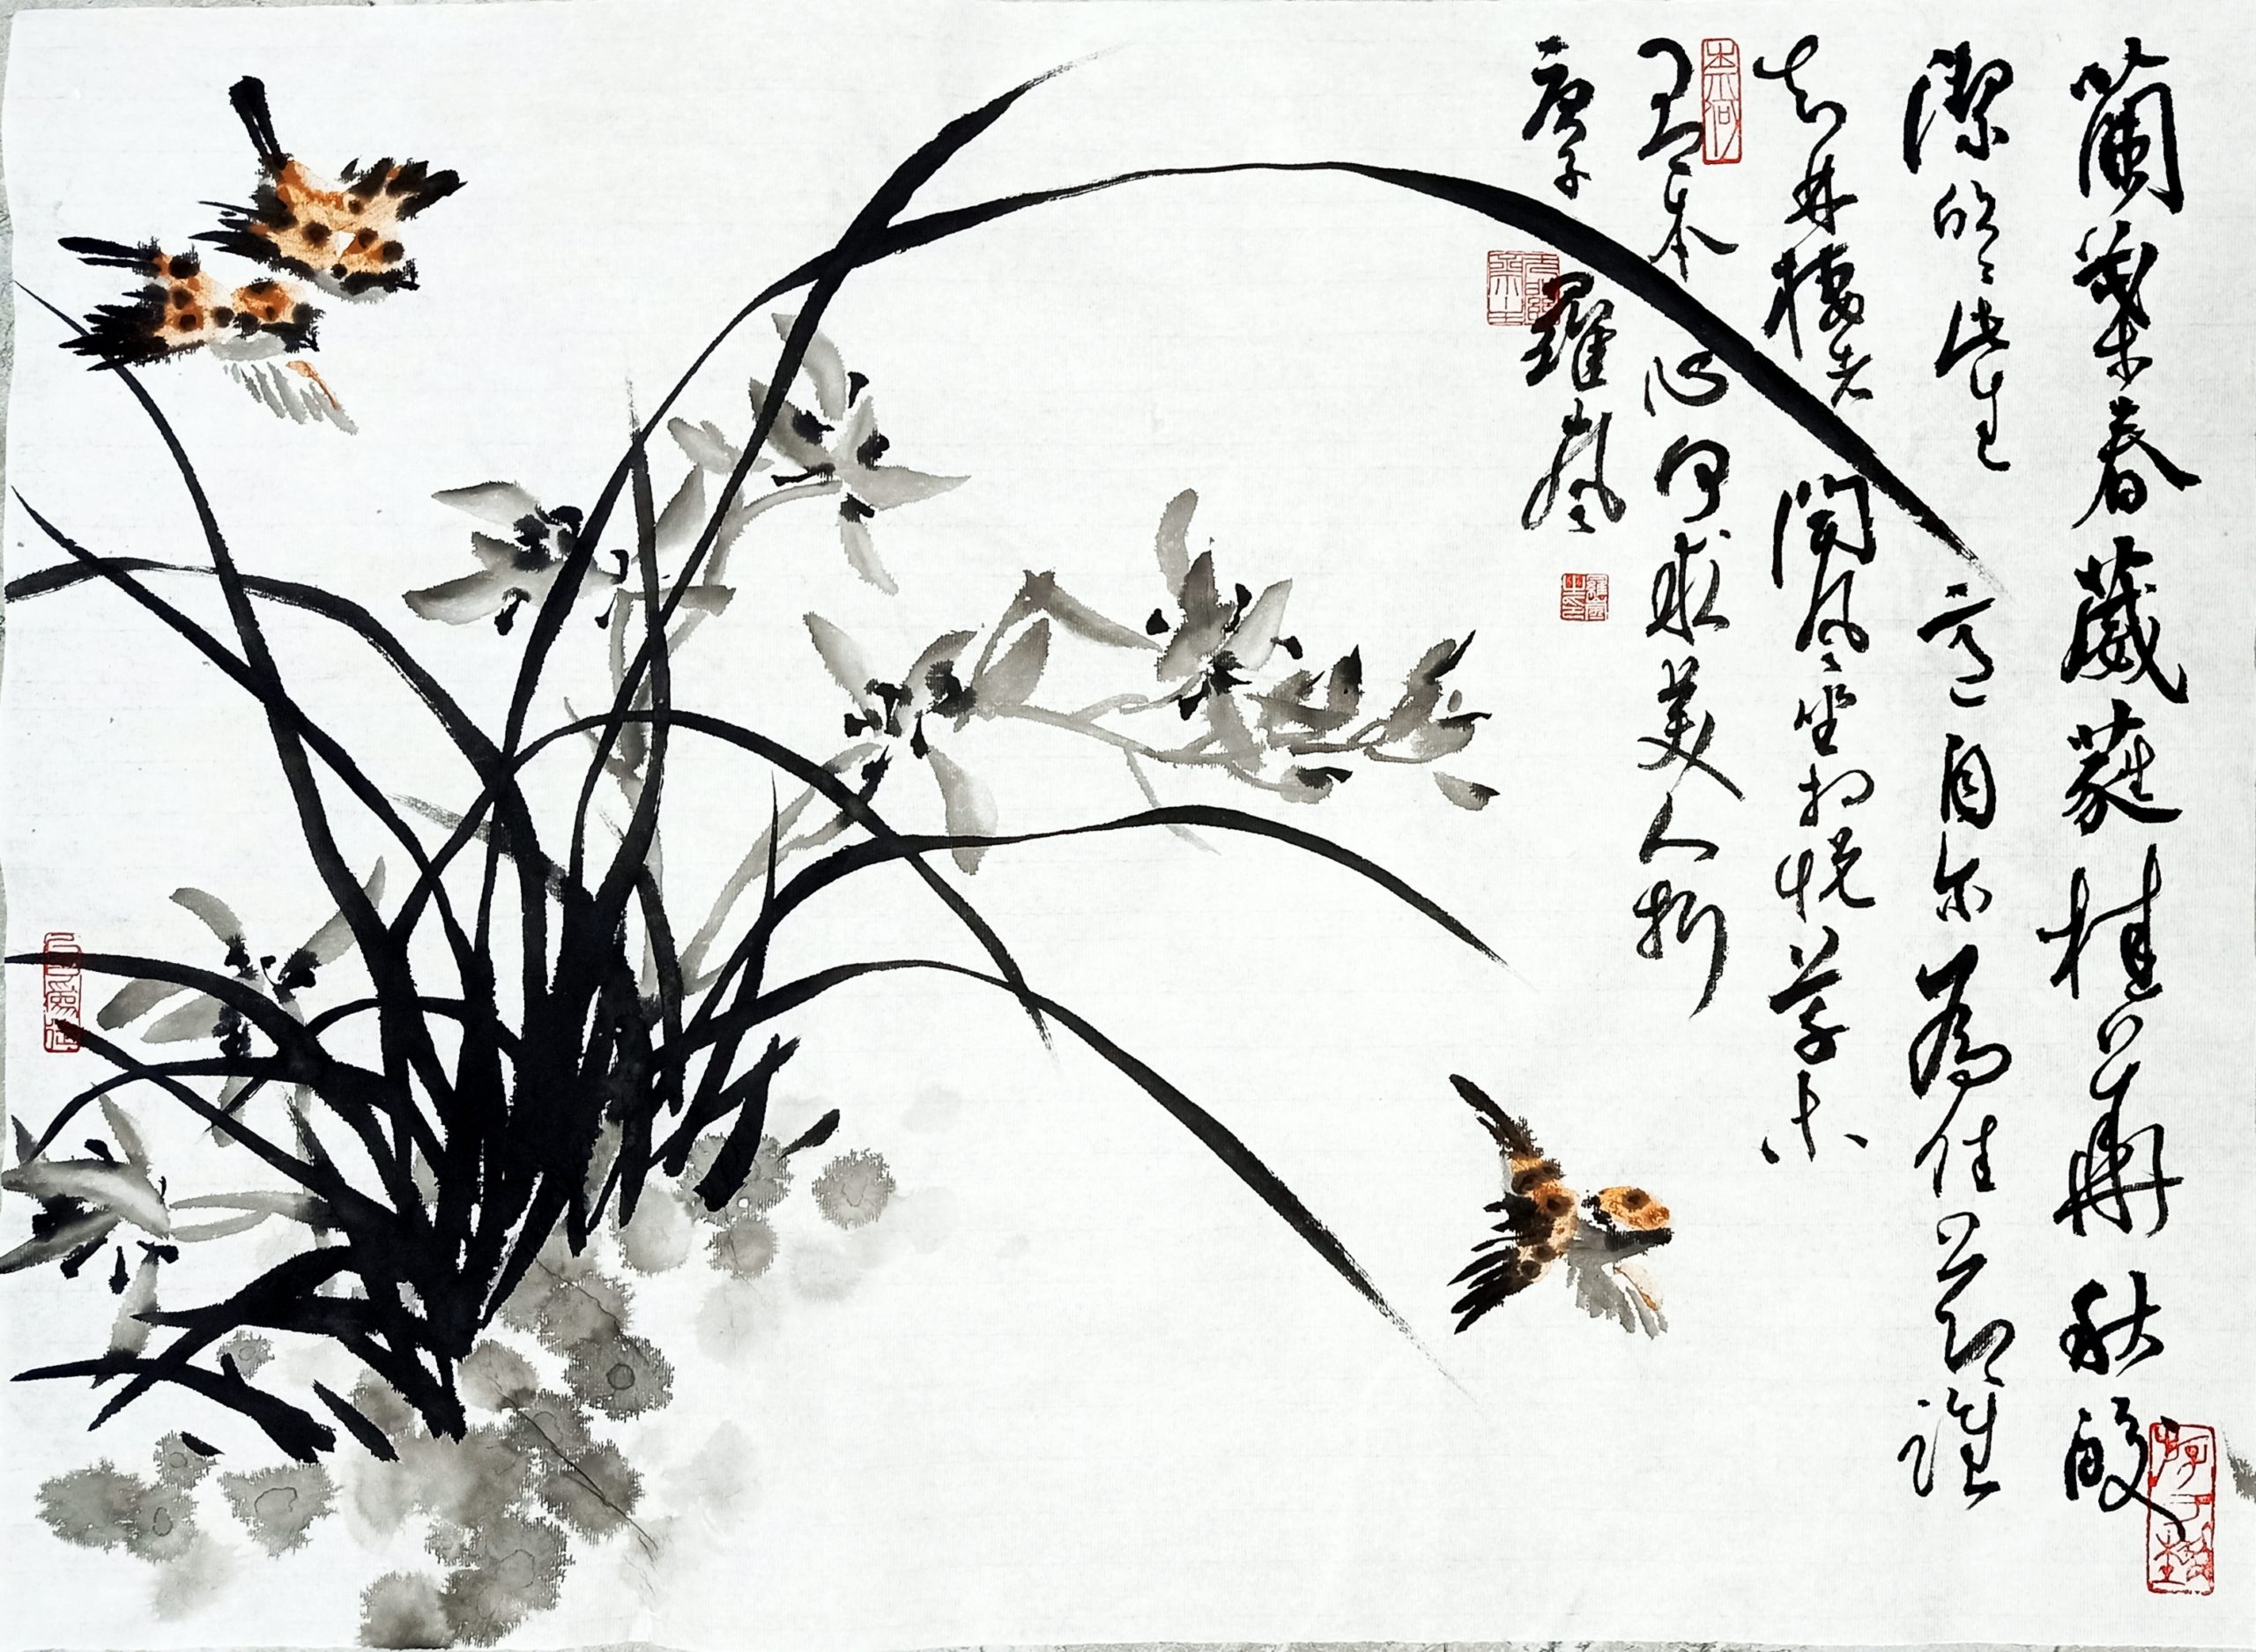 蘭葉春葳蕤桂華秋皎
潔欣欣此生意自尔為佳節誰
知林棲者聞風坐相悅草木
有本心何求美人折
庚子 羅嵐